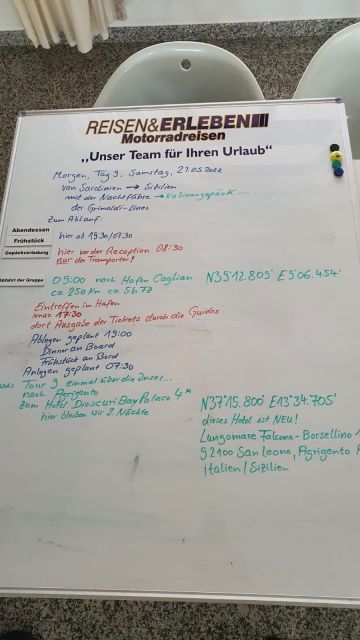 REISEN&ERLEBEN
Motorradreisen
„Unser Team für Ihren Urlaub“
Morgen, Tag 9, Samstag, 21.05.2022
von Sardinien → Sizilien
mit der Nachtfähre → Kabinengepäck....
der Grimaldi-Lines
Zum Ablauf:
Abendessen
Frühstück
hier ab 19:30/07:30
Gepäckverladung
hier vor der Reception 08:30
nur der Transporter!
Abfahrt der Gruppe
09:00 nach Hafen Cagliari N39°12.805' E9°06.454'
ca. 250 km ca. 5h
Eintreffen im Hafen
max. 17:30
dort Ausgabe der Tickets durch die Guides
Ablegen geplant 19:00
Dinner an Board
Frühstück an Bord
Anlegen geplant 07:30
Tour 9 einmal über die Insel...
nach Agrigento
zum Hotel Dioscuri Bay Palace 4*
hier bleiben wir 2 Nächte
N37°15.800' E13°34.705'
dieses Hotel ist NEU!
Lungomare Falcone-Borsellino
92100 San Leone, Agrigento
italien/Sizilien